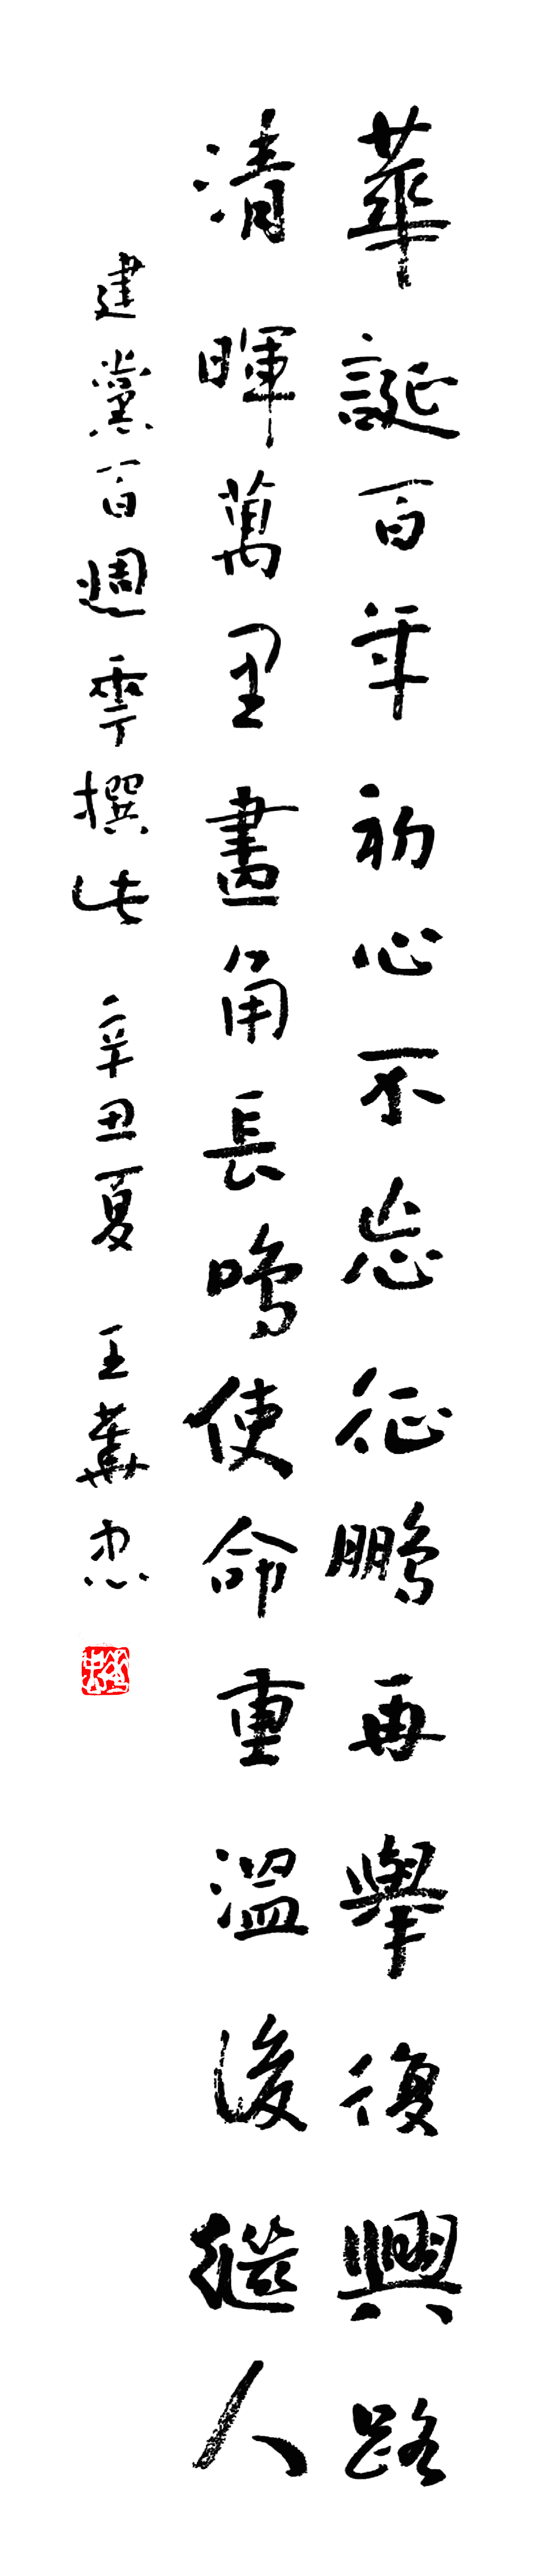 華誕百年初心不忘征鵬再舉復興路
清暉萬里畫角長鳴使命重溫後繼人
建黨百週撰此 辛丑夏 王忠